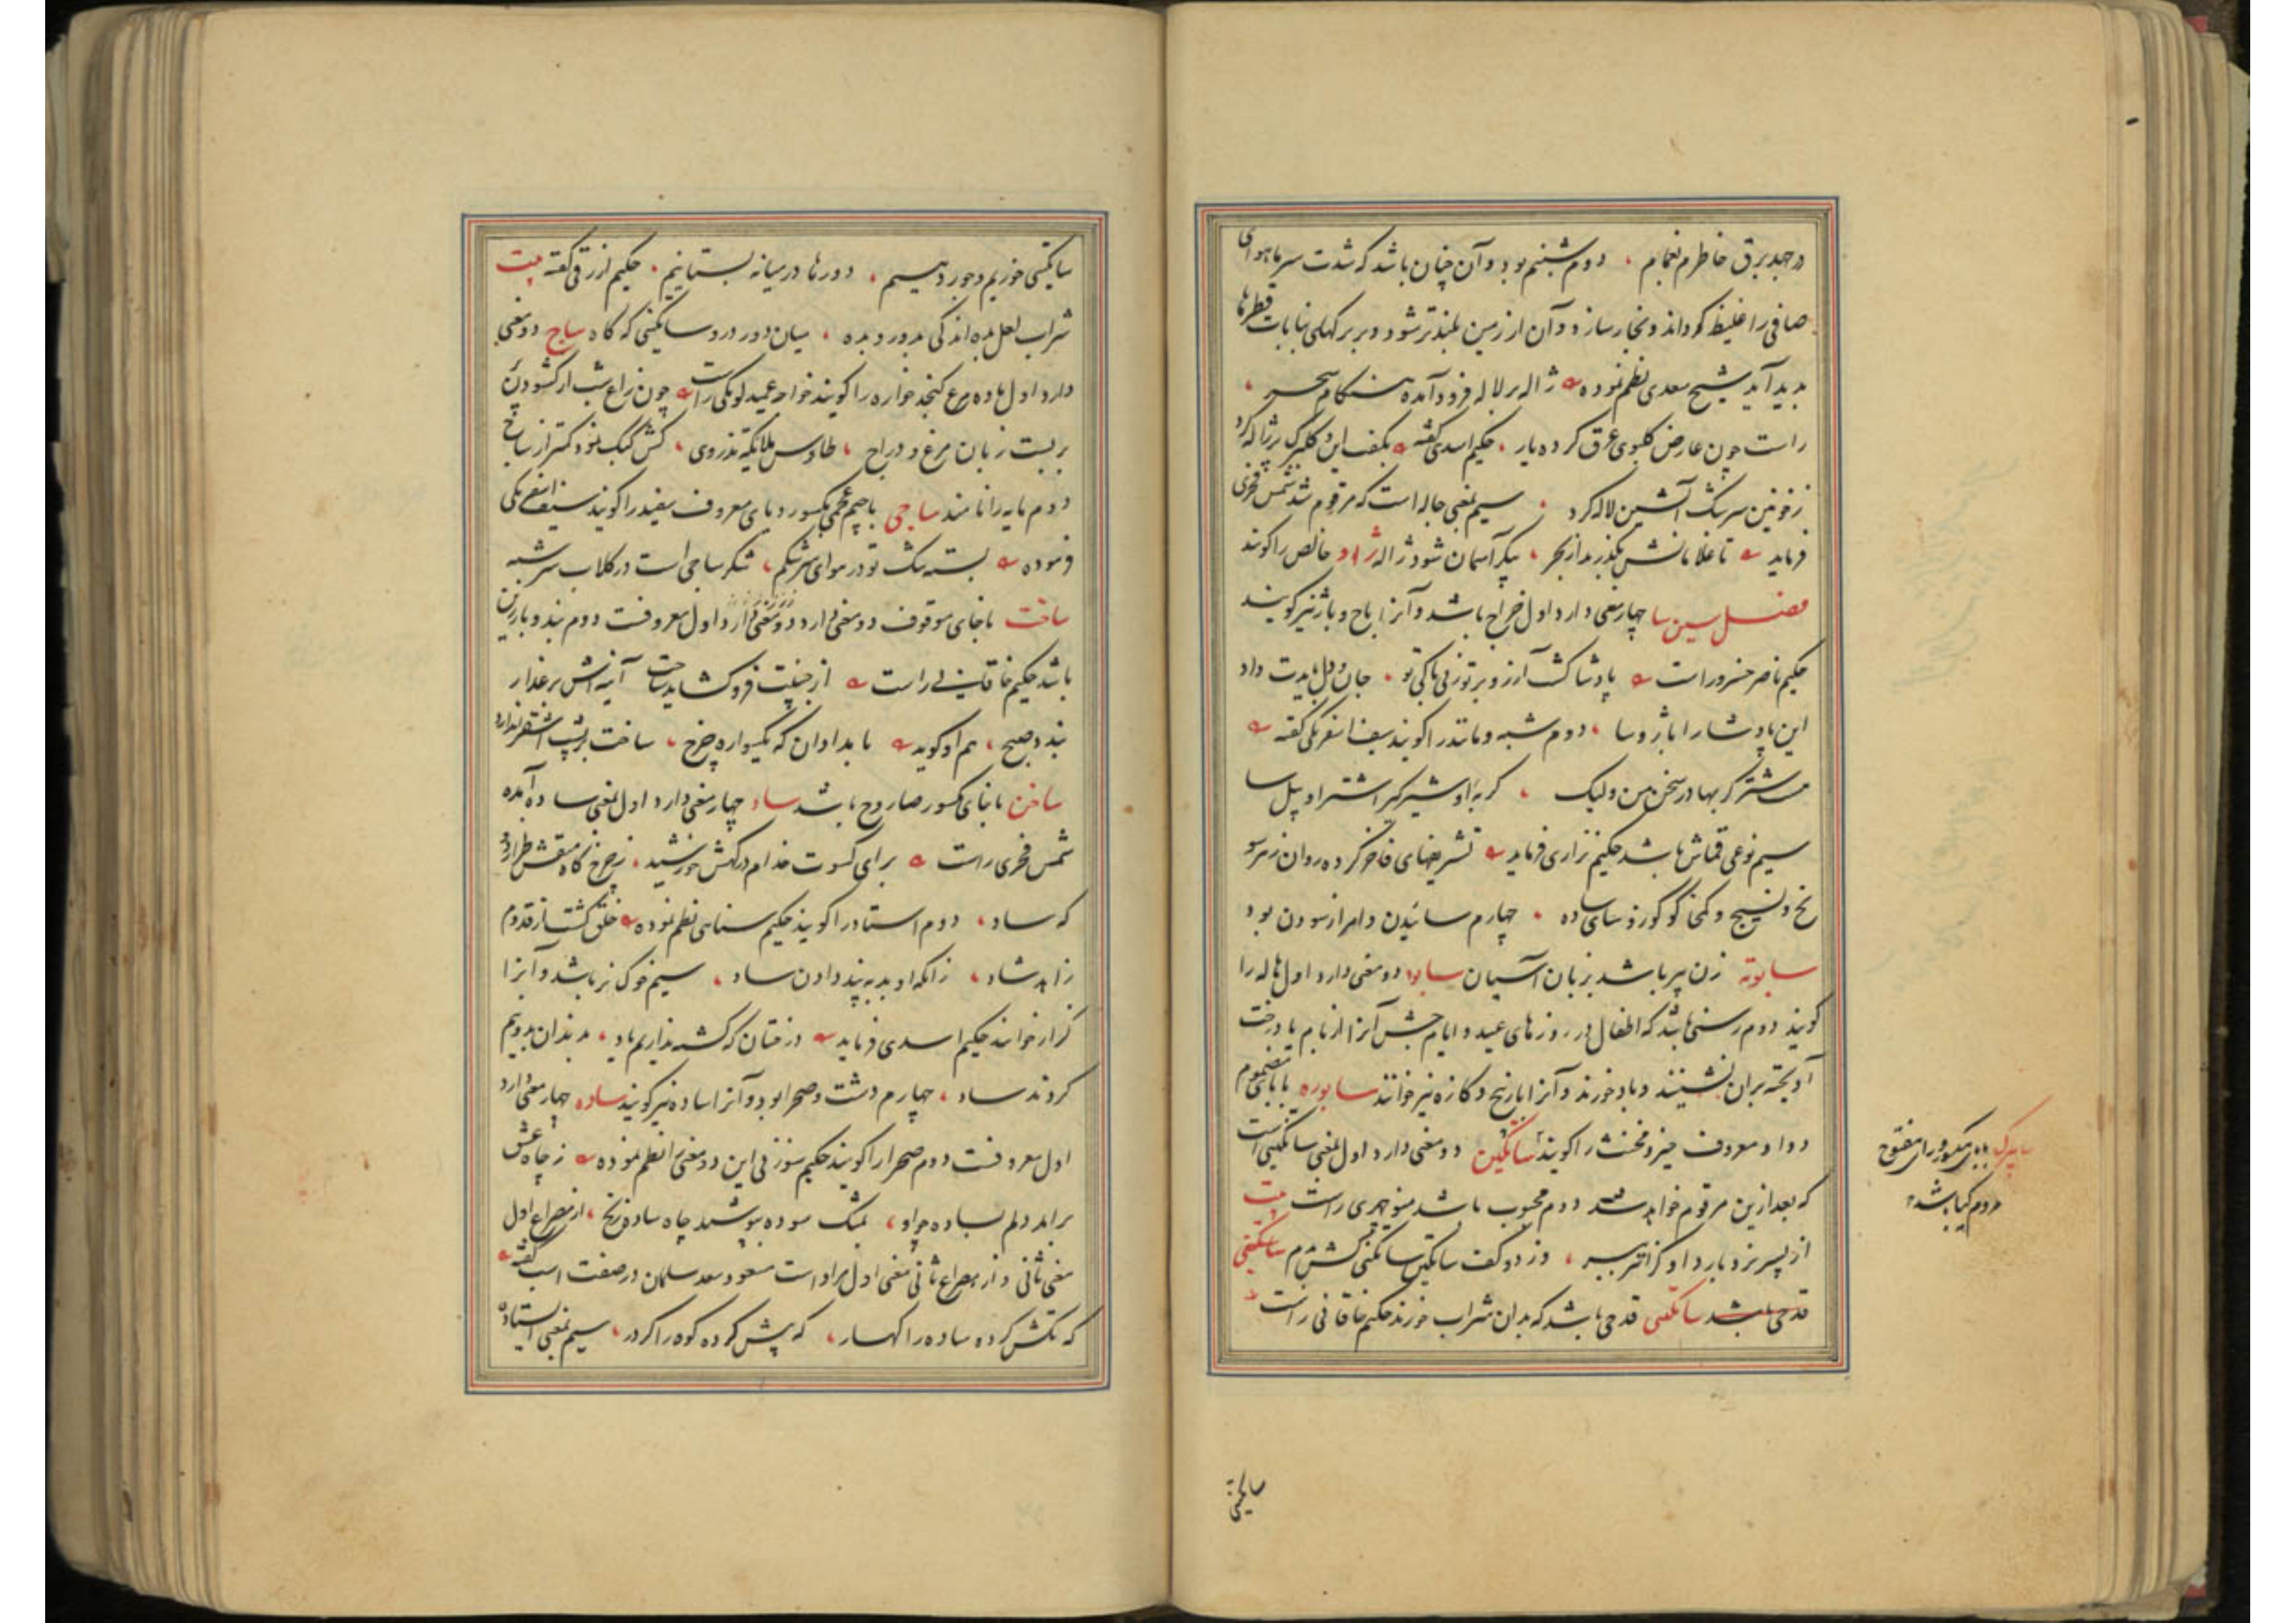 در جهد برق خاطرم نعمایم ، دوم شبنم بود و آن چنان باشد که شدت سرما هوای
صافی را غلیظ کرداند و بخار سازد و آن از زمین بلندتر شود و بر برکهای نباتات قطرها
بدید آید شیخ سعدی نظم نموده ژاله بر لاله فرود آمده هنکام سحر ،
راست چون عارض کلبوی عرق کرده یار ، حکیم اسدی کفته بکف این کلبرک پر ژاله کرد
ز خونین سرشک آتشین لاله کرد ، سیم بمعنی جاله است که مرقوم شد شمس فخری
فرماید تا غلامانش بکذرند از بحر ، پیکر آسمان شود ژاله ژاو خالص را کویند
فصل سین سا چهار معنی دارد اول خراج باشد و آنرا باج و باژ نیز کویند
حکیم ناصر خسرو راست پادشا کشت آرزو بر تو ز بی باکی تو ، جان و دل بایدت داد
این پادشا را باژ و سا ، دوم شبه و مانند را کویند سیف اسفرنکی کفته
مشتر کربها در سخن من ولیک ، کربه او شیر کیر اشتر او پیل سا
سیم نوعی قماش باشد حکیم نزاری فرماید تشریفهای فاخر کرده روان ز هر سو
نخ و نسیج و کمخا کو کورد سای ساده ، چهارم سائیدن و امر از سودن بود
سابوته زن پیر باشد بزبان آسیان سابود دو معنی دارد اول هاله را
کویند دوم رسنی باشد که اطفال در روزهای عید و ایام جشن آنرا از بام یا درخت
آویخته بر آن نشینند و باد خورند و آنرا بازنیج و کازه نیز خوانند سابوره با بای مضموم
و واو معروف حیز و مخنث را کویند ساتکین دو معنی دارد اول بمعنی ساتکنی است
که بعد ازین مرقوم خواهد شد دوم محبوب باشد منوچهری راست بیت
از پسر نرد باز داو کران بر ، وز دو کف ساتکین ساتکنی کش دمادم ساتکنی
قدحی باشد ساتکنی قدحی باشد که بدان شراب خورند حکیم خاقانی راست
ساپرک بابای مکسور و رای مفتوح
مردم کیا باشد
ساتکنی
ساتکنی خوریم و جور دهیم ، دورها در میانه بستانیم ، حکیم ازرقی کفته بیت
شراب لعل بده اندکی بدور و بده ، میان دور درو ساتکنی که کاه ساج دو معنی
دارد اول ماده مرغ کنجد خواره را کویند خواجه عمید لومکی راست چون زاغ شب از کشودن
بربست زبان مرغ و دراج ، طاوس ملایکه تذروی ، کش کبک بود کمتر از ساج
دوم تابه را نامند ساجی با جیم عجمی مکسور و یای معروف سفید را کویند سیف اسفرنکی
فرموده بسته شک تو در هوای سرشکم ، شکر ساجی است در کلاب سرشبه
ساخت باخای موقوف دو معنی دارد دو معنی دارد اول معروفست دوم بند و یا رزین
باشد حکیم خاقانی راست از جنیبت فرو کشاید ساخت آینه آنش بر عذار
بندد صبح ، هم او کوید بامدادان که یکسواره چرخ ، ساخت بر پشت اشقر اندازد
ساخن با خای مکسور صاروج باشد ساد چهار معنی دارد اول بمعنی ساده آمده
شمس فخری راست برای کسوت خدام درکهش خورشید ، ز چرخ کاه منقش طرازد و
که ساد ، دوم استاد را کویند حکیم سنایی نظم نموده خلق کشت از قدوم
زاهد شاد ، زانکه او بد به پند دادن ساد ، سیم خوک نر باشد و آنرا
کراز خوانند حکیم اسدی فرماید درختان که کشته نداریم یاد ، بدندان بدو نیم
کردند ساد ، چهارم دشت و صحرا بود و آنرا ساده نیز کویند ساده چهار معنی دارد
اول معروفست دوم صحرا را کویند حکیم سوزنی این دو معنی را نظم نموده ز چاه عشق
براید دلم بساده چو او ، بمشک سوده بپوشید چاه ساده زنخ ، از مصراع اول
معنی ثانی و از مصراع ثانی معنی اول مراد است مسعود سعد سلمان در صفت اسب کفته
که تکش کرده ساده را کهسار ، که پیش کرده کوه را کردر ، سیم بمعنی استاده